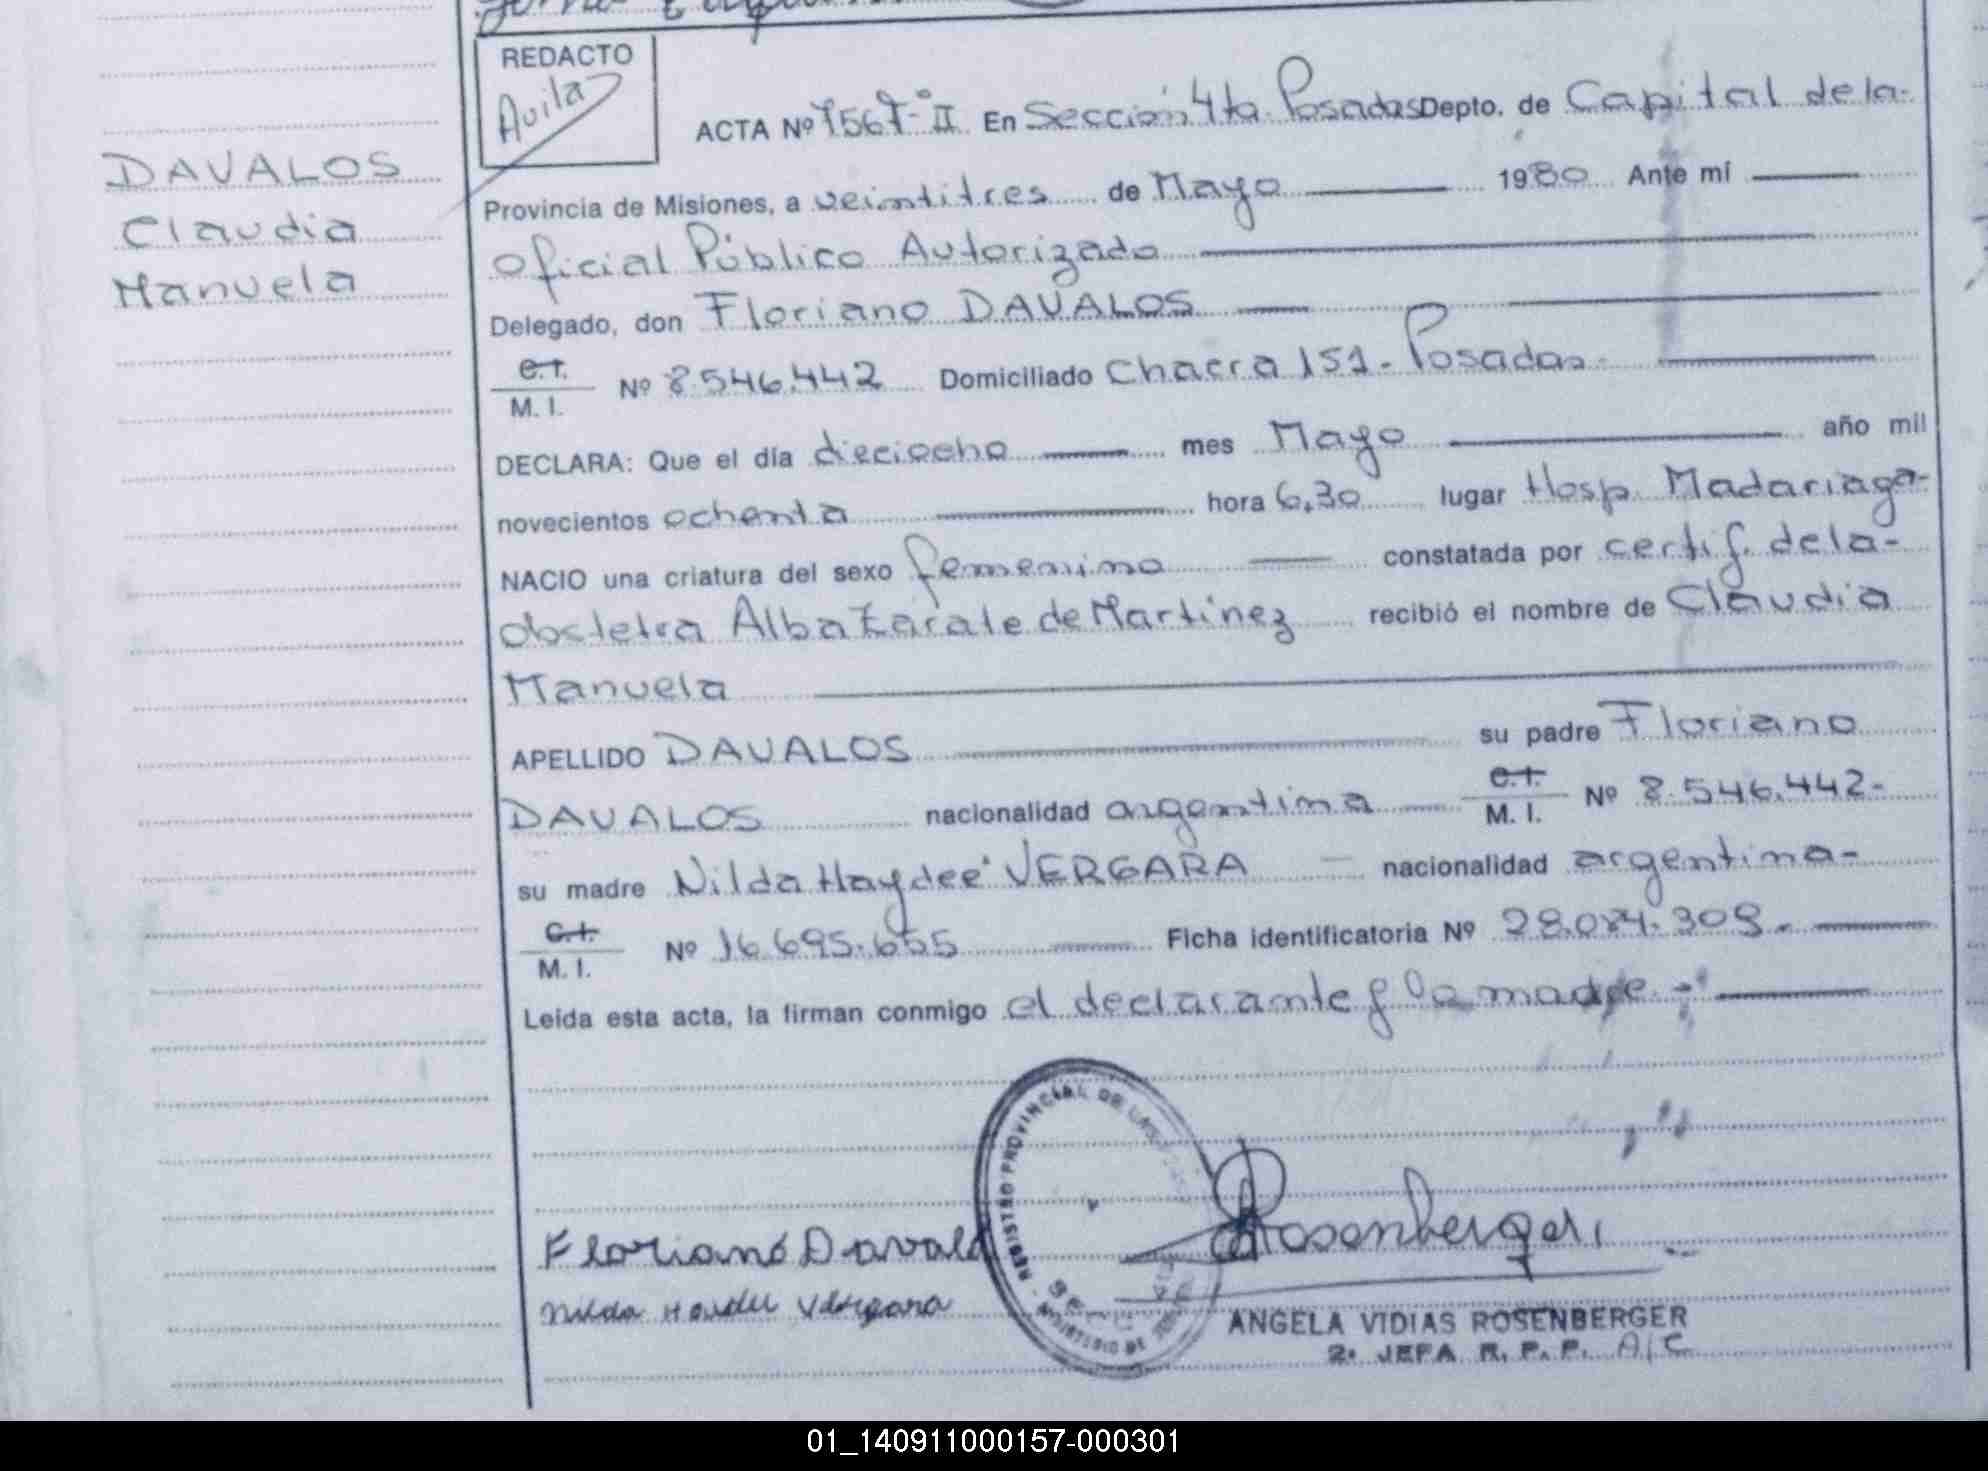 REDACTO
Avila
ACTA Nº 1567-II En Sección 4ta. Posadas Depto. de Capital de la-
DAVALOS
Claudia
Manuela
Provincia de Misiones, a veintitres de Mayo 1980 Ante mí
Oficial Público Autorizado
Delegado, don Floriano DAVALOS
C.I. M. I. Nº 8.546.442 Domiciliado Chacra 151 - Posadas-
DECLARA: Que el día dieciocho mes Mayo año mil
novecientos ochenta hora 6,30 lugar Hosp. Madariaga-
NACIO una criatura del sexo femenino constatada por certif. de la-
obstetra Alba Zarate de Martinez recibió el nombre de Claudia
Manuela
APELLIDO DAVALOS su padre Floriano
DAVALOS nacionalidad argentina C.I. M. I. Nº 8.546.442-
su madre Nilda Haydeé VERGARA nacionalidad argentina-
C.I. M. I. Nº 16.695.655 Ficha identificatoria Nº
Leída esta acta, la firman conmigo el declarante y la madre.-
REGISTRO PROVINCIAL DE
MINISTERIO DE
Floriano Davalo
Nilda Haydee Vergara
Rosenberger
ANGELA VIDIAS ROSENBERGER
2ª JEFA R. P. P. A/C
01_140911000157-000301